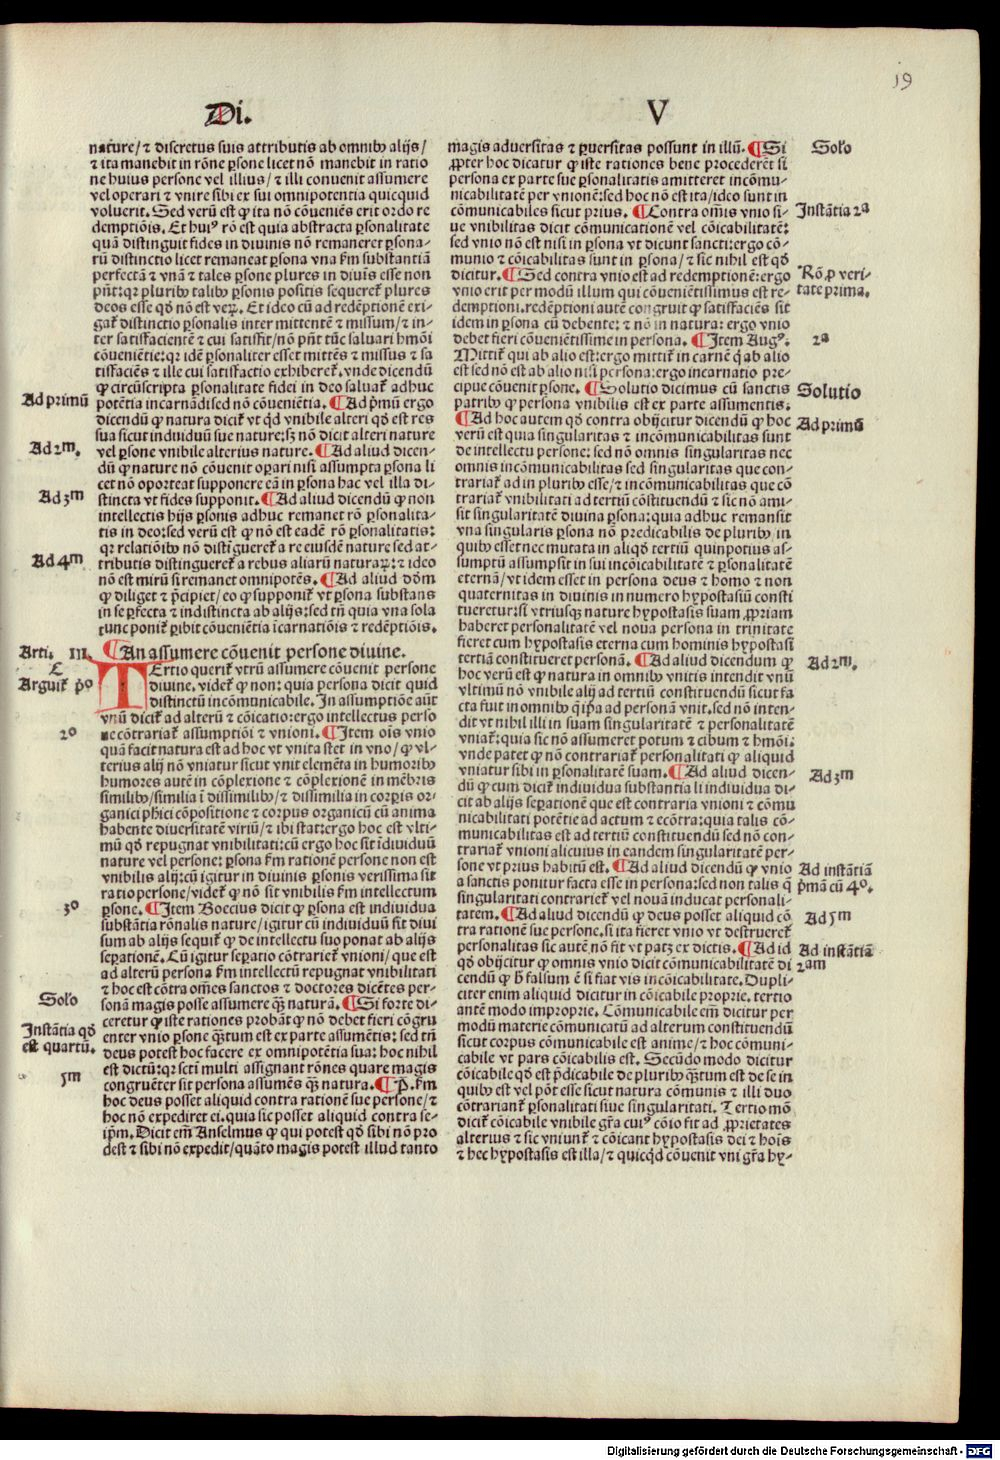 19
Di.
V
nature/ ⁊ discretus suis attributis ab omnibꝰ alijs/
⁊ ita manebit in rōne ꝑsone licet nō manebit in ratio
ne huius persone vel illius/ ⁊ illi convenit assumere
vel operari ⁊ vnire sibi ex sui omnipotentia quicquid
voluerit. Sed verū est ꝙ ita nō cōueniēs erit ordo re
demptiōis. Et huiꝰ rō est quia abstracta ꝑsonalitate
quā distinguit fides in divinis nō remaneret ꝑsona-
rū distinctio licet remaneat ꝑsona vna ẜm substantiā
perfectā ⁊ vnā ⁊ tales ꝑsone plures in diuīs esse non
pn̄t: qꝛ pluribꝰ talibꝰ ꝑsonis positis sequeret̃ plures
deos esse qđ nō est veꝝ. Et ideo cū ad redēptionē exi-
gat̃ distinctio ꝑsonalis inter mittentē ⁊ missum/ ⁊ in-
ter satisfacientē ⁊ cui satisfit/ nō pn̄t tūc saluari hmōi
cōuenientie: qꝛ idē ꝑsonaliter esset mittēs ⁊ missus ⁊ sa
tisfaciēs ⁊ ille cui satisfactio exhiberet̃. vnde dicendū
ꝙ circūscripta ꝑsonalitate fidei in deo saluat̃ adhuc
Ad primū
potētia incarnādi sed nō cōuenientia. ¶ Ad p̄mū ergo
dicendū ꝙ natura dicit̃ vt qđ vnibile alteri qđ est res
sua sicut indiuiduū sue nature: sꝫ nō dicit alteri nature
Ad 2m.
vel ꝑsone vnibile alterius nature. ¶ Ad aliud dicen-
dū ꝙ nature nō cōuenit oꝑari nisi assumpta ꝑsona li
cet nō oporteat supponere eā in ꝑsona hac vel illa di-
Ad 3m
stincta vt fides supponit. ¶ Ad aliud dicendū ꝙ non
intellectis hijs ꝑsonis adhuc remanet rō ꝑsonalita-
tis in deo: sed verū est ꝙ nō est eadē rō ꝑsonalitatis:
qꝛ relatiōibꝰ nō distīgueret̃ a re eiusdē nature sed at-
Ad 4m
tributis distingueret̃ a rebus aliarū naturaꝝ: ⁊ ideo
nō est mirū si remanet omnipotēs. ¶ Ad aliud dōm
ꝙ diliget ⁊ p̄cipiet/ eo ꝙ supponit̃ vt ꝑsona substans
in se ꝑfecta ⁊ indistincta ab alijs: sed tn̄ quia vna sola
tunc ponit̃ ꝑibit cōueniētia īcarnatiōis ⁊ redēptiōis.
Arti. III.
¶ An assumere cōuenit persone diuine.
Arguit̃ p̊
TErtio querit̃ vtrū assumere cōuenit persone
diuine. videt̃ ꝙ non: quia persona dicit quid
distinctū incōmunicabile. In assumptiōe aūt
vnū dicit̃ ad alterū ⁊ cōicatio: ergo intellectus perso
2o
ne cōtrariat̃ assumptiōi ⁊ vnioni. ¶ Item oīs vnio
quā facit natura est ad hoc vt vnita stet in vno/ ꝙ vl-
terius alij nō vniatur sicut vnit elemēta in humoribꝰ
humores autē in cōplexione ⁊ cōplexionē in mēbris
similibꝰ/ similia ī dissimilibꝰ/ ⁊ dissimilia in corꝑis or-
ganici phici cōpositione ⁊ corpus organicū cū anima
habente diuersitatē viriū/ ⁊ ibi stat: ergo hoc est vlti-
mū qđ repugnat vnibilitati: cū ergo hoc sit īdiuiduū
nature vel persone: ꝑsona ẜm rationē persone non est
vnibilis alij: cū igitur in diuinis ꝑsonis verissima sit
ratio persone/ videt̃ ꝙ nō sit vnibilis ẜm intellectum
3o
ꝑsone. ¶ Item Boecius dicit ꝙ ꝑsona est indiuidua
substātia rōnalis nature/ igitur cū indiuiduū sit diui
sum ab alijs sequit̃ ꝙ de intellectu suo ponat ab alijs
seꝑationē. Cū igitur seꝑatio cōtrariet̃ vnioni/ que est
ad alterū persona ẜm intellectū repugnat vnibilitati
⁊ hoc est cōtra oēs sanctos ⁊ doctores dicētes per-
Solo
sonā magis posse assumere q̄ꝫ naturā. ¶ Si forte di-
Instātia qđ
ceretur ꝙ iste rationes probāt ꝙ nō debet fieri cōgru
est quartū.
enter vnio ꝑsone q̄ꝫtum est ex parte assumētis: sed tn̄
deus potest hoc facere ex omnipotētia sua: hoc nihil
5m
est dictū: qꝛ scti multi assignant rōnes quare magis
congruēter sit persona assumēs q̄ꝫ natura. ¶ P. ẜm
hoc deus posset aliquid contra rationē sue persone/ ⁊
hoc nō expediret ei. quia sic posset aliquid contra se-
ip̄m. Dicit em̄ Anselmus ꝙ qui potest qđ sibi nō pro
dest ⁊ sibi nō expedit/ quāto magis potest illud tanto
Solo
magis aduersitas ⁊ ꝑuersitas possunt in illū. ¶ Si
ꝓpter hoc dicatur ꝙ iste rationes bene procederēt si
persona ex parte sue ꝑsonalitatis amitteret incōmu-
nicabilitatē per vnionē: sed hoc nō est ita/ ideo sunt in
Instātia 2a
cōmunicabiles sicut prius. ¶ Contra oīs vnio si-
ue vnibilitas dicit cōmunicationē vel cōicabilitatē:
sed vnio nō est nisi in ꝑsona vt dicunt sancti: ergo cō-
munio ⁊ cōicabilitas sunt in ꝑsona/ ⁊ sic nihil est qđ
Rō ꝓ veri-
tate prima.
dicitur. ¶ Sed contra vnio est ad redemptionē: ergo
vnio erit per modū illum qui cōuenientissimus est re-
demptioni. redēptioni autē congruit ꝙ satisfaciēs sit
idem in ꝑsona cū debente: ⁊ nō in natura: ergo vnio
2a
debet fieri cōuenientissime in persona. ¶ Item Augꝰ.
Mittit̃ qui ab alio est: ergo mittit̃ in carnē q̇ ab alio
est sed nō est ab alio nisi ꝑsona: ergo incarnatio pre-
Solutio
cipue cōuenit ꝑsone. ¶ Solutio dicimus cū sanctis
patribꝰ ꝙ persona vnibilis est ex parte assumentis.
Ad primū
¶ Ad hoc autem qđ contra obijcitur dicendū ꝙ hoc
verū est quia singularitas ⁊ incōmunicabilitas sunt
de intellectu persone: sed nō omnis singularitas nec
omnis incōmunicabilitas sed singularitas que con-
trariat̃ ad in pluribꝰ esse/ ⁊ incōmunicabilitas que cō
trariat̃ vnibilitati ad tertiū cōstituendū ⁊ sic nō ami-
sit singularitatē diuina ꝑsona: quia adhuc remansit
vna singularis ꝑsona nō predicabilis de pluribꝰ/ in
quibꝰ esset nec mutata in aliqđ tertiū quinpotius as-
sumptū assumpsit in sui incōicabilitatē ⁊ ꝑsonalitatē
eternā/ vt idem esset in persona deus ⁊ homo ⁊ non
quaternitas in diuinis in numero hypostasiū consti
tueretur: si vtriusqꝫ nature hypostasis suam ꝓpriam
haberet personalitatē vel noua persona in trinitate
fieret cum hypostasis eterna cum hominis hypostasi
Ad 2m.
tertiā constitueret personā. ¶ Ad aliud dicendum ꝙ
hoc verū est ꝙ natura in omnibꝰ vnitis intendit vnū
vltimū nō vnibile alij ad tertiū constituendū sicut fa
cta fuit in omnibꝰ q̄ ip̄a ad personā vnit. sed nō inten-
dit vt nihil illi in suam singularitatē ⁊ personalitatē
vniat̃: quia sic nō assumeret potum ⁊ cibum ⁊ hmōi.
vnde patet ꝙ nō contrariat̃ personalitati ꝙ aliquid
Ad 3m
vniatur sibi in ꝑsonalitatē suam. ¶ Ad aliud dicen-
dū ꝙ cum dicit̃ indiuidua substantia li indiuidua di-
cit ab alijs seꝑationē que est contraria vnioni ⁊ cōmu
nicabilitati potētie ad actum ⁊ ecōtra: quia talis cō-
municabilitas est ad tertiū constituendū sed nō con-
trariat̃ vnioni alicuius in eandem singularitatē per-
Ad instātiā
p̄mā cū 4o.
sone vt prius habitū est. ¶ Ad aliud dicendū ꝙ vnio
a sanctis ponitur facta esse in persona: sed non talis q̄
singularitati contrariet̃ vel nouā inducat personali-
Ad 5m
tatem. ¶ Ad aliud dicendū ꝙ deus posset aliquid cō
tra rationē sue persone. si ita fieret vnio vt destrueret̃
Ad instātiā
2am
personalitas sic autē nō fit vt patꝫ ex dictis. ¶ Ad id
qđ obijcitur ꝙ omnis vnio dicit cōmunicabilitatē di
cendū ꝙ ħ falsum ē si fiat vis incōicabilitate. Dupli-
citer enim aliquid dicitur incōicabile proprie. tertio
antē modo improprie. Cōmunicabile em̄ dicitur per
modū materie cōmunicatū ad alterum constituendū
sicut corpus cōmunicabile est anime/ ⁊ hoc cōmuni-
cabile vt pars cōicabilis est. Secūdo modo dicitur
cōicabile qđ est p̄dicabile de pluribꝰ q̄ꝫtum est de se in
quibꝰ est vel pōt esse sicut natura cōmunis ⁊ illi duo
cōtrariant̃ ꝑsonalitati siue singularitati. Tertio mō
dicit̃ cōicabile vnibile gr̄a cuiꝰ cōio fit ad ꝓprietates
alterius ⁊ sic vniunt̃ ⁊ cōicant hypostasis dei ⁊ hoīs
⁊ hec hypostasis est illa/ ⁊ quicqđ cōuenit vni gr̄a hy-
Digitalisierung gefördert durch die Deutsche Forschungsgemeinschaft - DFG